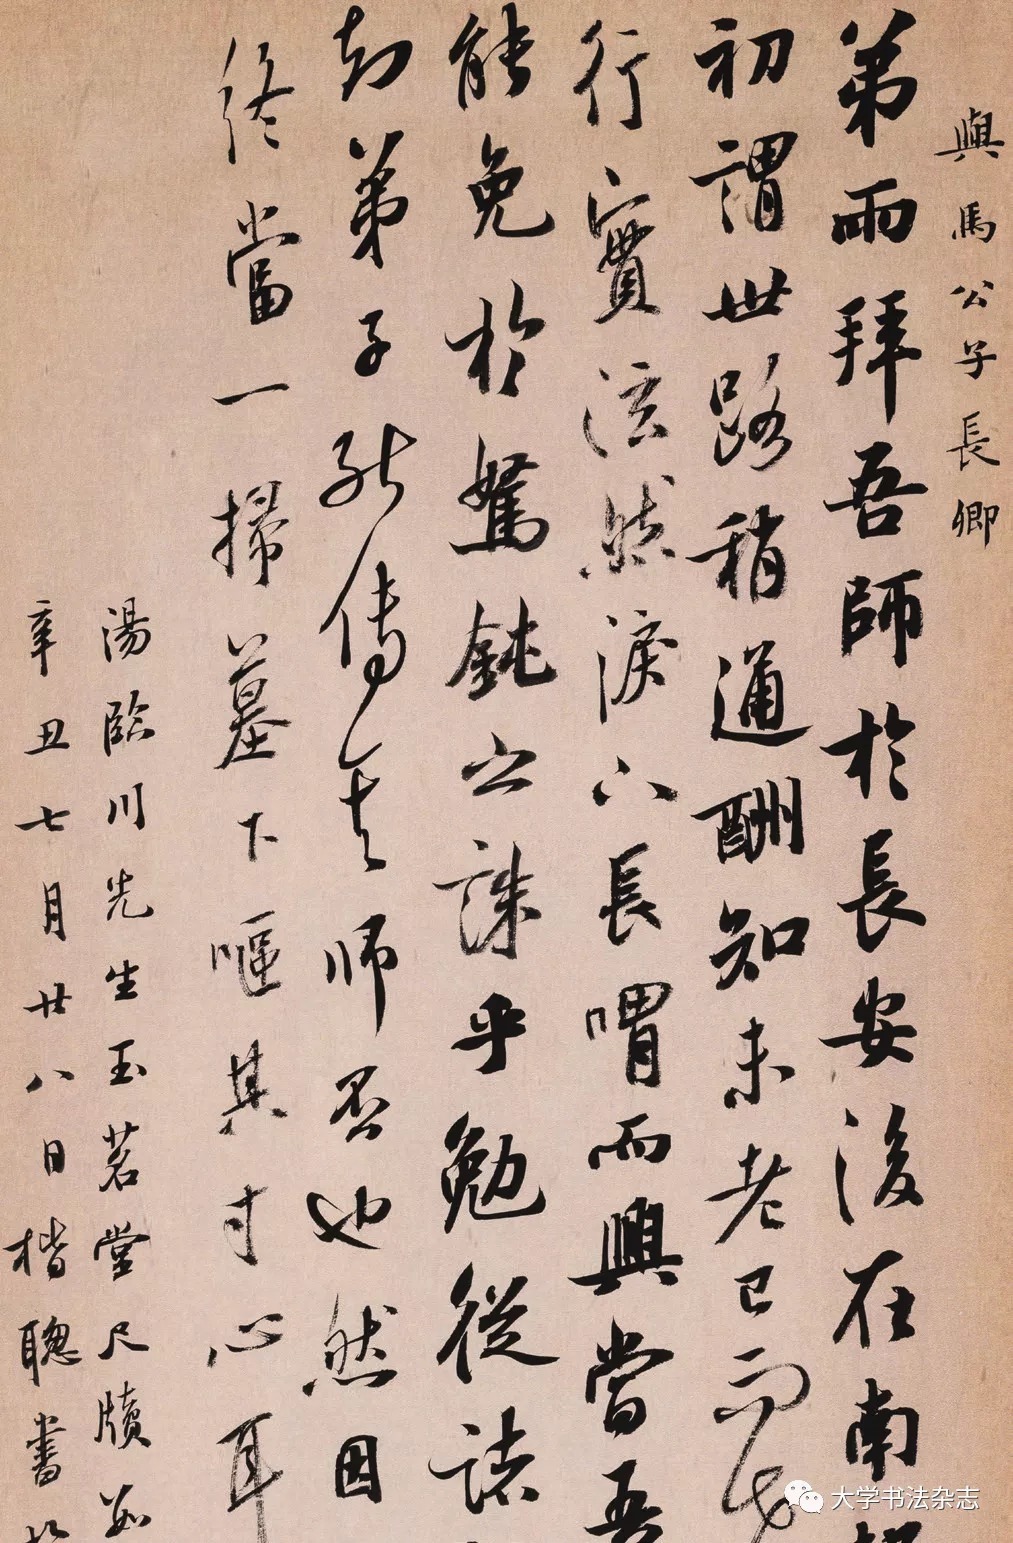 與馬公子長卿
弟兩拜吾師於長安後在南
初謂世路稍通酬知未老已而
行實泫然淚下長喟而興嘗吾
能免於駑鈍之誅乎勉從諸
知弟子能傳其師否也然因
終當一掃墓下嘔其寸心耳
湯臨川先生玉茗堂尺牘
辛丑七月廿八日楷聰書
大学书法杂志